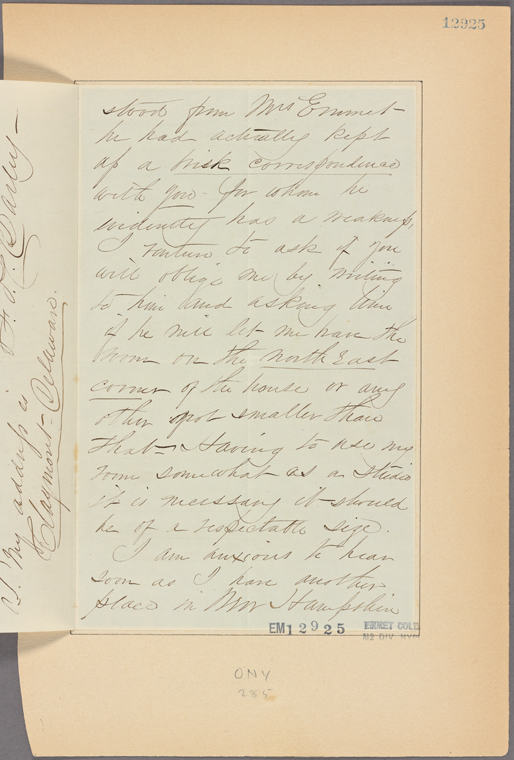 12925
stood from Mrs Emmet -
he had actually kept
up a brisk correspondence
with you - for whom he
evidently has a weakness,
I venture to ask if you
will oblige me by writing
to him and asking him
if he will let me have the
room on the North East
corner of the house or any
other spot smaller than
that - Having to use my
room somewhat as a studio
it is necessary it should
be of a respectable size.
I am anxious to hear
soon as I have another
place in New Hampshire
P.S. My address is F.O.C. Darley -
Claymont - Delaware.
EM12925
EMMET COLL
MS DIV. NYPL
ONY
285